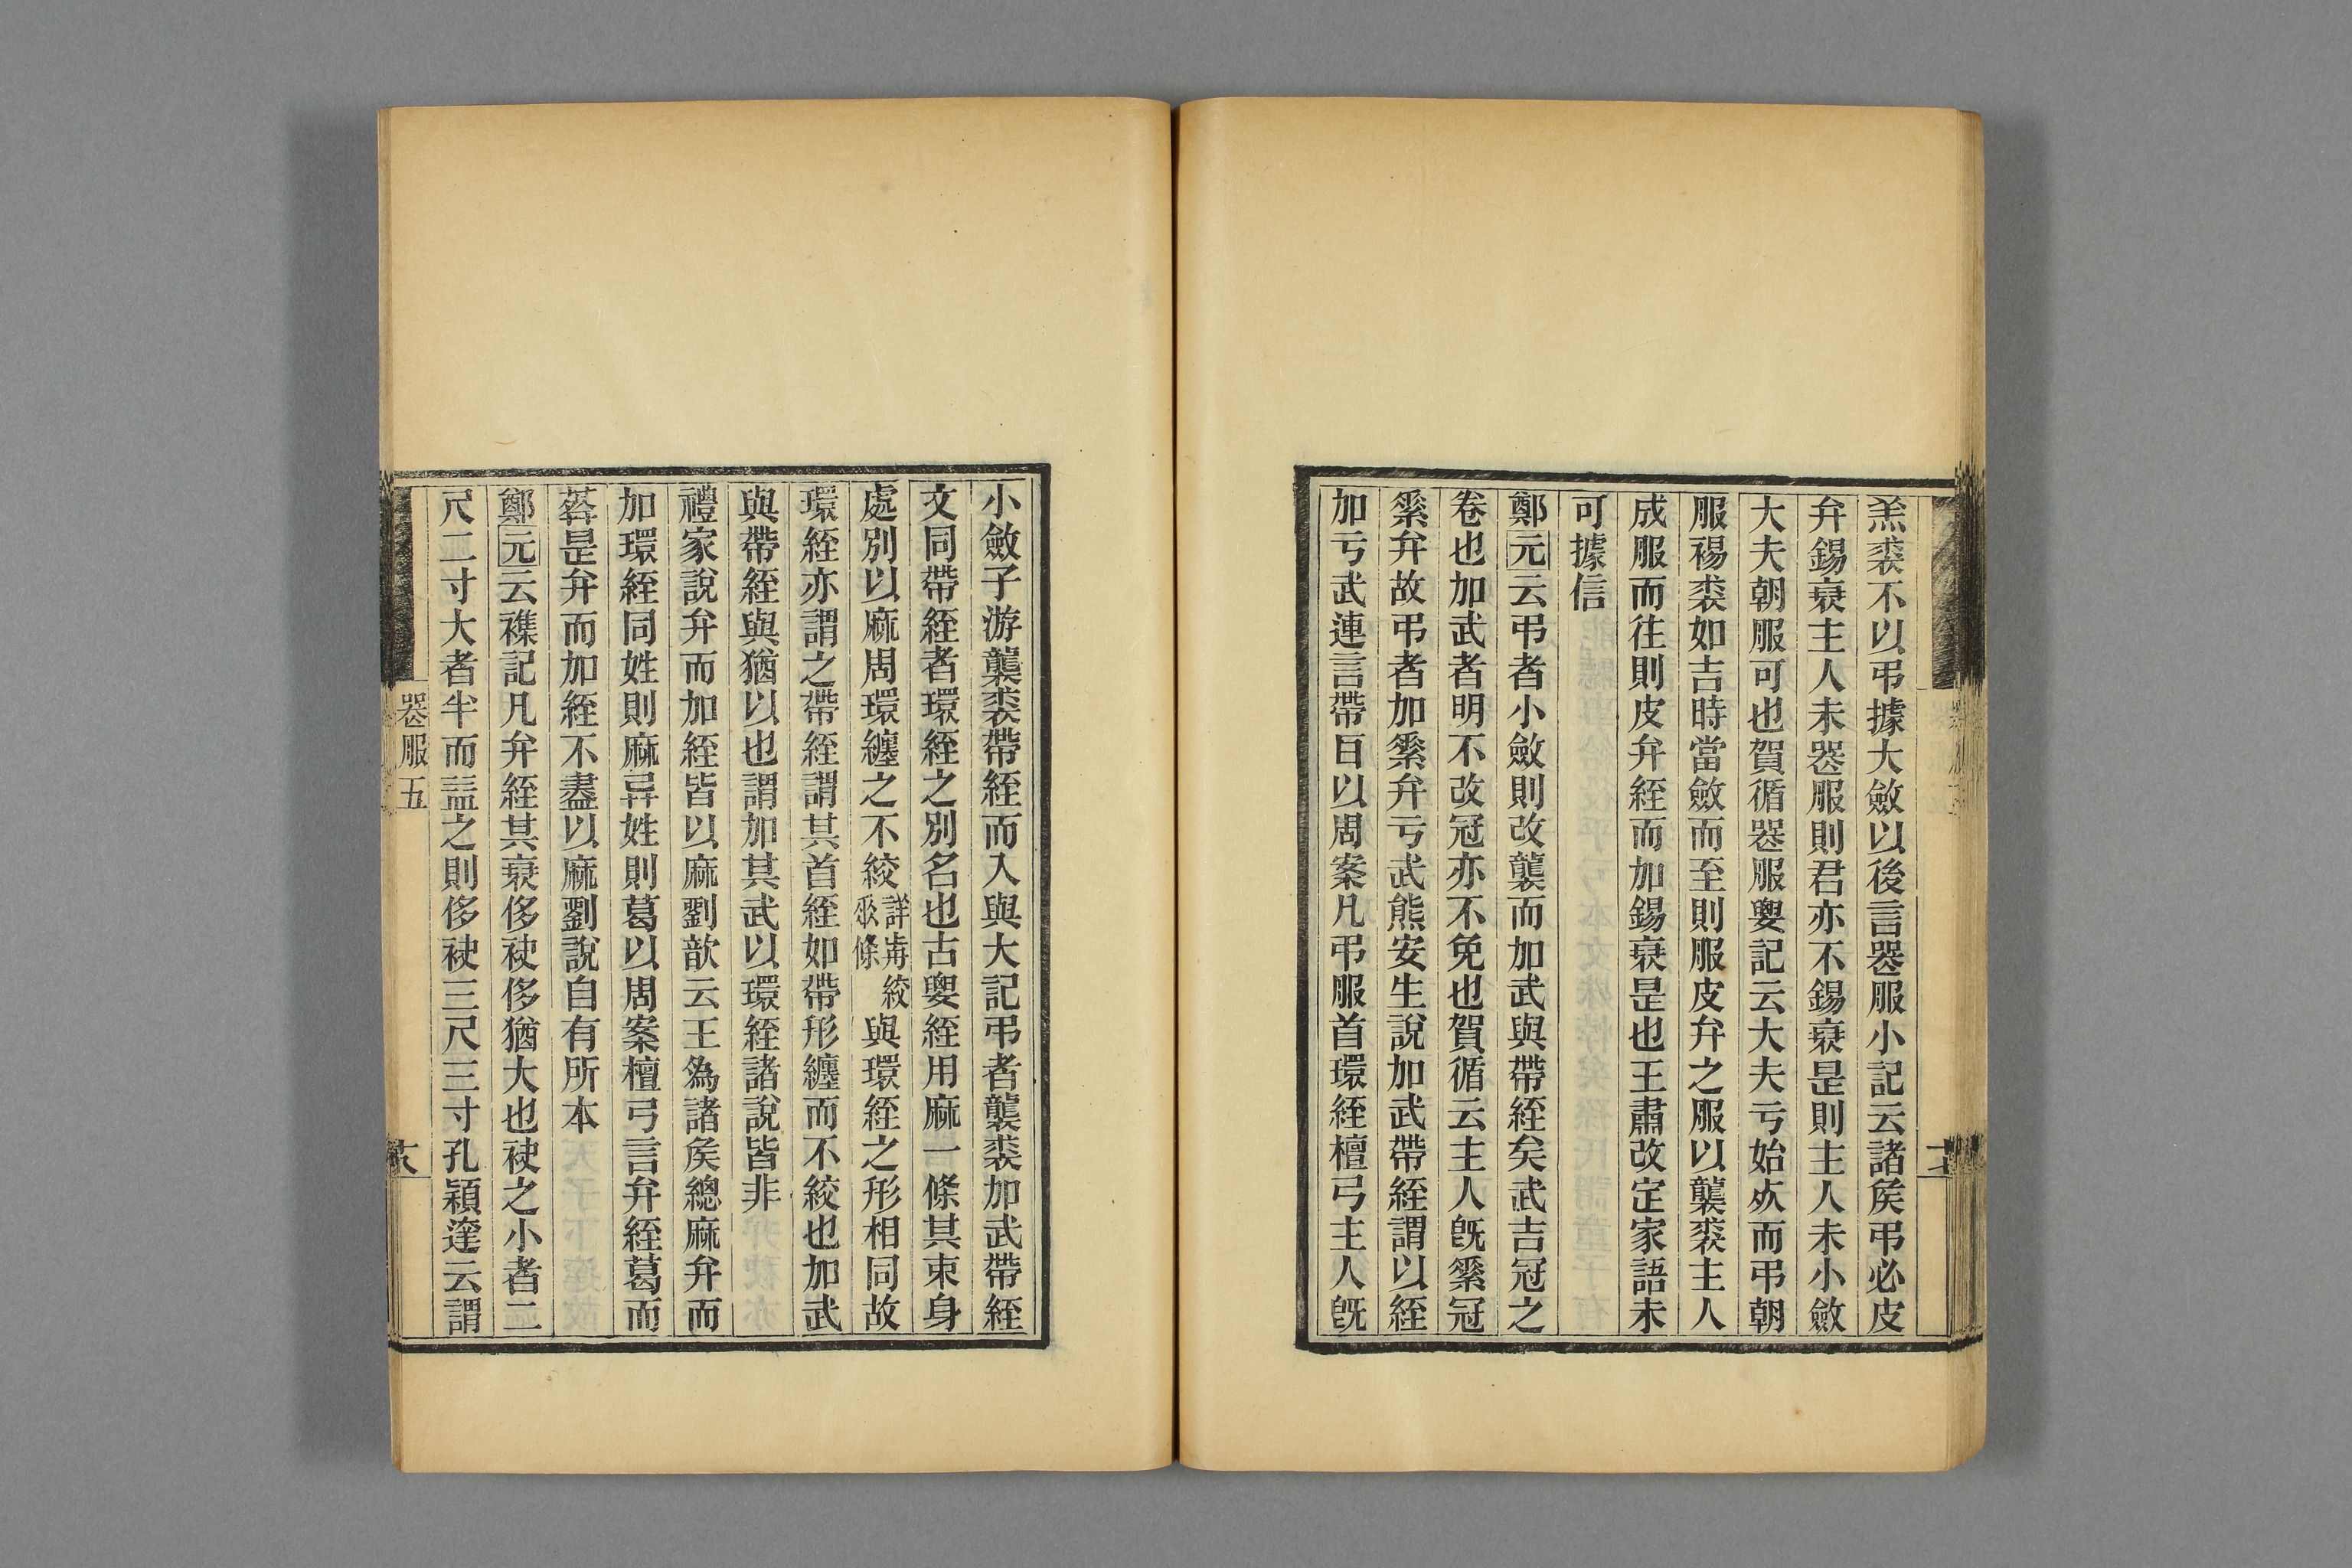 羔裘不以弔據大斂以後言喪服小記云諸矦弔必皮
弁錫衰主人未喪服則君亦不錫衰是則主人未小斂
大夫朝服可也賀循喪服要記云大夫亏始死而弔朝
服裼裘如吉時當斂而至則服皮弁之服以襲裘主人
成服而往則皮弁絰而加錫衰是也王肅改定家語未
可據信
鄭元云弔者小斂則改襲而加武與帶絰矣武吉冠之
卷也加武者明不改冠亦不免也賀循云主人旣素冠
素弁故弔者加素弁亏武熊安生說加武帶絰謂以絰
加亏武連言帶百以周案凡弔服首環絰檀弓主人旣
小斂子游襲裘帶絰而入與大記弔者襲裘加武帶絰
文同帶絰者環絰之別名也古要絰用麻一條其束身
處別以麻周環纏之不絞詳前絞 條與環絰之形相同故
環絰亦謂之帶絰謂其首絰如帶形纏而不絞也加武
與帶絰與猶以也謂加其武以環絰諸說皆非
禮家說弁而加絰皆以麻劉歆云王爲諸矦緦麻弁而
加環絰同姓則麻異姓則葛以周案檀弓言弁絰葛而
葬是弁而加絰不盡以麻劉說自有所本
鄭元云襍記凡弁絰其衰侈袂侈猶大也袂之小者二
尺二寸大者半而益之則侈袂三尺三寸孔穎達云謂
喪服五
十八